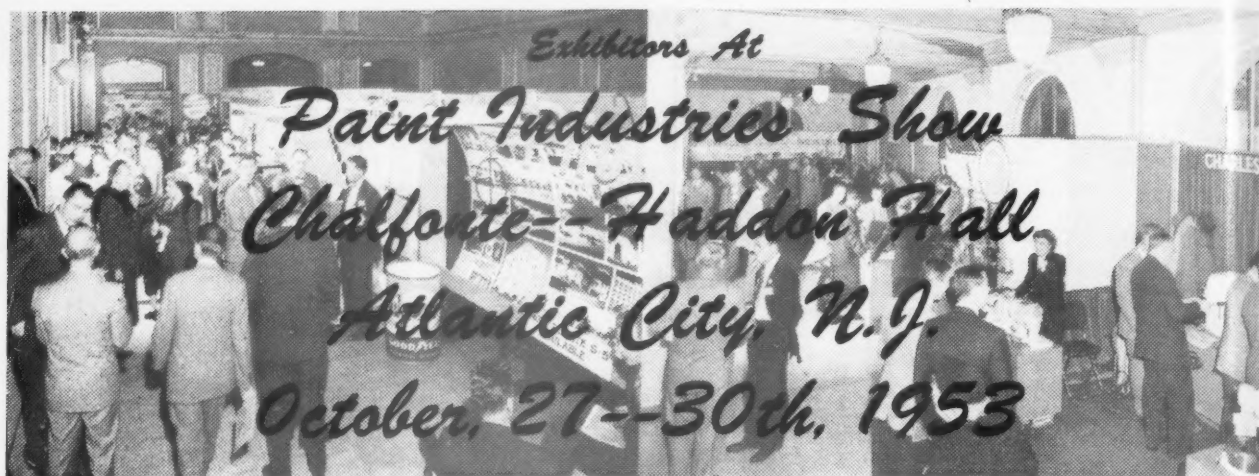 Exhibitors At
Paint Industries' Show
Chalfonte--Haddon Hall
Atlantic City, N.J.
October, 27--30th, 1953